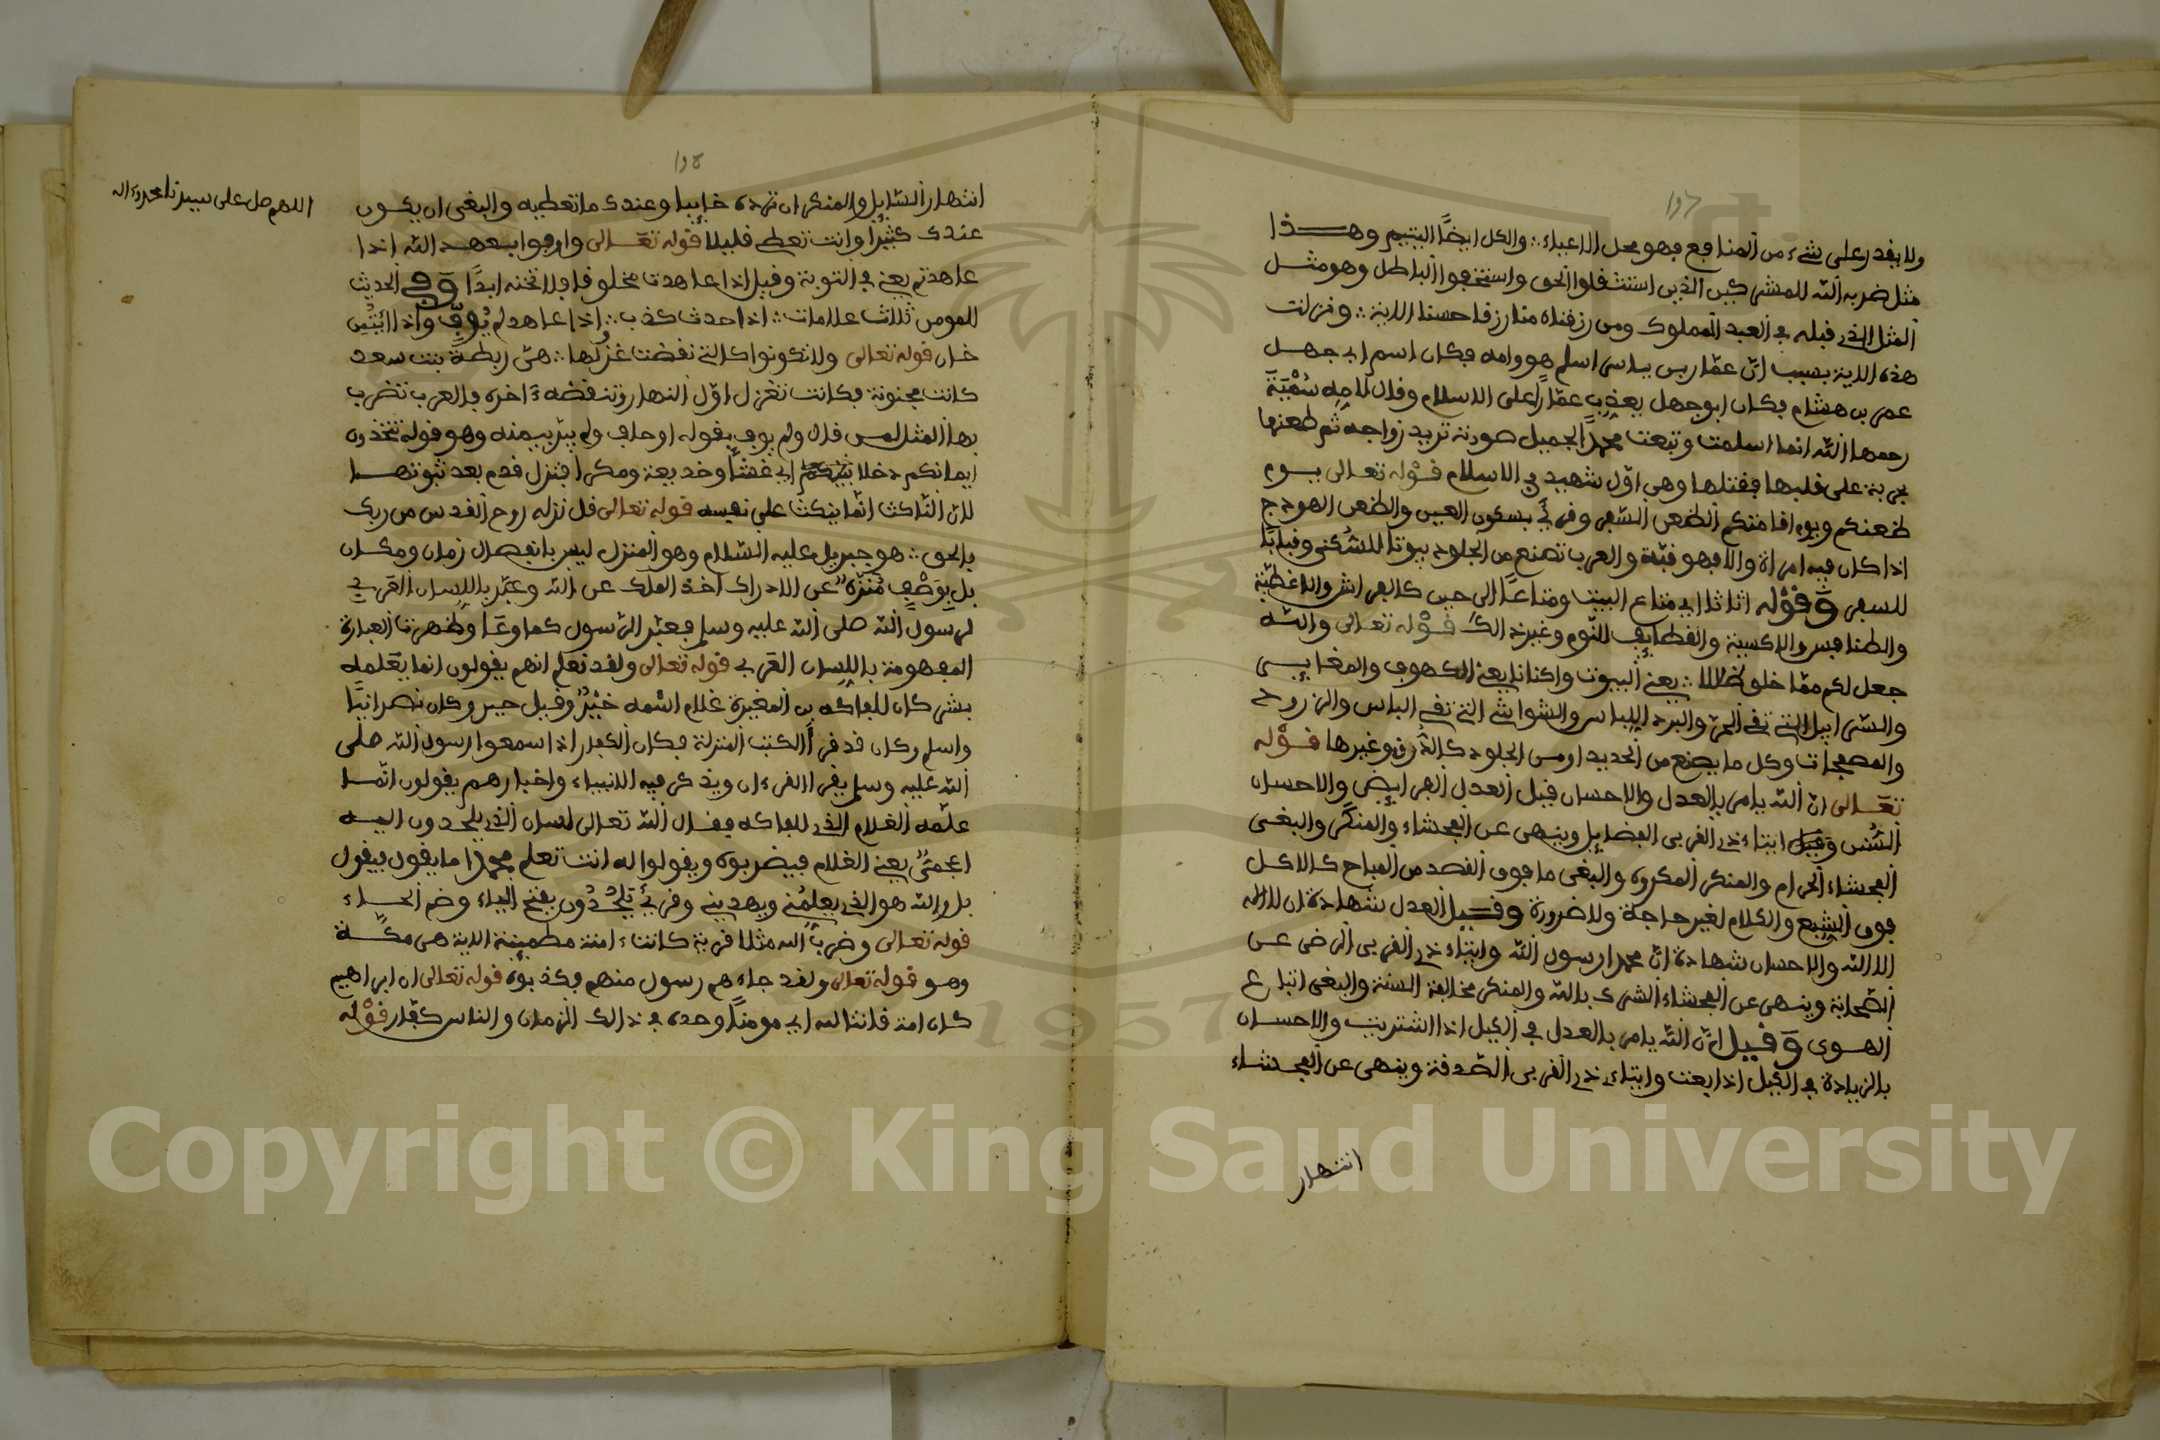 ولا يقدر على شيء من المنافع فهو محل الاعياء والكل ايضا اليتيم وهذا
مثل ضربه الله للمشركين الذين استثقلوا الحق واستخفوا الباطل وهو مثل
المثل الذي قبله في العبد المملوك ومن رزقناه منا رزقا حسنا الاية ونزلت
هذه الاية بسبب ان عمار بن ياسر اسلم هو وامه فكان اسم ابي جهل
عمر بن هشام فكان ابو جهل يعذب عمارا على الاسلام وقال لامه سمية
رحمها الله انما اسلمت وتبعت محمدا لجميل صورته تريد زواجه ثم طعنها
بحربة على قلبها فقتلها وهي اول شهيد في الاسلام قوله تعالى يوم
ظعنكم ويوم اقامتكم الظعن السفر وقرئ بسكون العين والظعن الهودج
اذا كان فيه امراة والا فهو قبة والعرب تصنع من الجلود بيوتا للسكنى وقبابا
للسفر وقوله اثاثا اي متاع البيت ومتاعا الى حين كالفراش والاغطية
والطنافس والاكسية والقطايف للنوم وغير ذالك قوله تعالى والله
جعل لكم مما خلق ظلالا يعني البيوت واكنانا يعني الكهوف والمغايـ
والسرابيل التي تقي الحر والبرد اللباس والشواشي التي تقي الباس والزروح
والمصفحات وكل ما يصنع من الحديد او من الجلود كالدرق وغيرها قوله
تعالى ان الله يامر بالعدل والاحسان قيل العدل الفرايض والاحسان
السنن وقيل ايتاء ذي القربى الفضايل وينهى عن الفحشاء والمنكر والبغي
الفحشاء الحرام والمنكر المكروه والبغي ما فوق القصد من المباح كالاكل
فوق الشبع والكلام لغير حاجة ولا ضرورة وقيل العدل شهادة ان لا اله
الا الله والاحسان شهادة ان محمدا رسول الله وايتاء ذي القربى الرضى عن
الصحابة وينهى عن الفحشاء الشرك بالله والمنكر مخالفة السنة والبغي اتباع
الهوى وقيل ان الله يامر بالعدل في الكيل اذا اشتريت والاحسان
بالزيادة في الكيل اذا بعت وايتاء ذي القربى الصدقة وينهى عن الفحشاء
انتهار
اللهم صل على سيدنا محمد واله
انتهار السايل والمنكر ان ترده خايبا وعندك ما تعطيه والبغي ان يكون
عندك كثيرا وانت تعطي قليلا قوله تعالى واوفوا بعهد الله اذا
عاهدتم يعني في التوبة وقيل اذا عاهدت مخلوقا فلا تخنه ابدا وفي الحديث
للمومن ثلاث علامات اذا حدث كذب اذا عاهد لم يوف واذا ائتمن
خان قوله تعالى ولا تكونوا كالتي نقضت غزلها هي ريطة بنت سعد
كانت مجنونة فكانت تغزل اول النهار وتنقضه في اخره والعرب تضرب
بها المثل لمن قال ولم يوف بقوله او حلف ولم يبر بيمينه وهو قوله تتخذون
ايمانكم دخلا بينكم اي غشا وخديعة ومكرا فتزل قدم بعد ثبوتها
لان الناكث انما ينكث على نفسه قوله تعالى قل نزله روح القدس من ربك
بالحق هو جبريل عليه السلام وهو المنزل ليس بانفصال زمان ومكان
بل بوصف منزه عن الادراك اخذه الملك عن الله وعبر باللسان العربي
لرسول الله صلى الله عليه وسلم فعبر الرسول كما وعا وظهرت العبارة
المفهومة باللسان العربي قوله تعالى ولقد نعلم انهم يقولون انما يعلمه
بشر كان للفاكه بن المغيرة غلام اسمه خير وقيل جبر وكان نصرانيا
واسلم وكان قد قرا الكتب المنزلة فكان الكفار اذا سمعوا رسول الله صلى
الله عليه وسلم يقرا القرءان ويذكر فيه الانبياء واخبارهم يقولون انما
علمه الغلام الذي للفاكه فقال الله تعالى لسان الذي يلحدون اليه
اعجمي يعني الغلام فيضربوه ويقولوا له انت تعلم محمدا ما يقول فيقول
بل والله هو الذي يعلمني ويهديني وقرئ يلحدون بفتح الياء وضم الحاء
قوله تعالى وضرب الله مثلا قرية كانت ءامنة مطمينة الاية هي مكة
وهو قوله تعالى ولقد جاءهم رسول منهم فكذبوه قوله تعالى ان ابراهيم
كان امة قانتا لله اي مومنا وحده في ذالك الزمان والناس كفار قوله
Copyright © King Saud University
1957